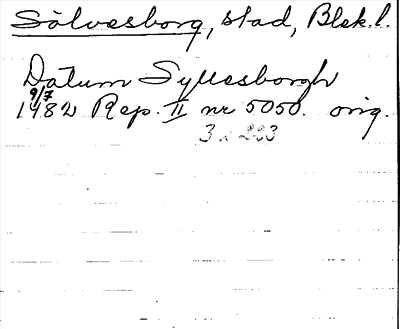 Sölvesborg, stad, Blek.l.
Datum Syllesborgh
9/7
1482 Rep. II nr 5050. orig.
3 x 233